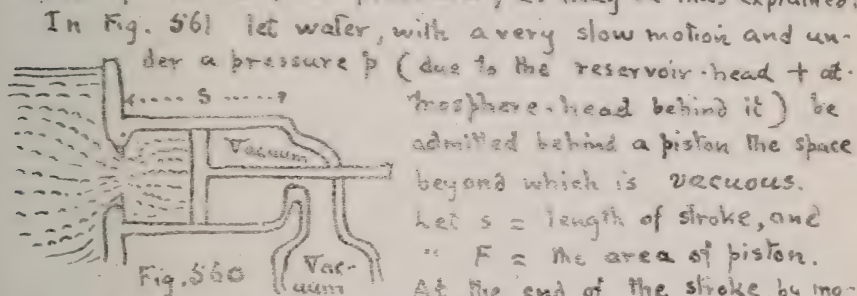 In Fig. 561 let water, with a very slow motion and un-
der a pressure p (due to the reservoir-head + at-
mosphere-head behind it) be
admitted behind a piston the space
beyond which is vacuous.
Let s = length of stroke, and
" F = the area of piston.
At the end of the stroke by mo-
s
Vacuum
Vac-
uum
Fig. 560